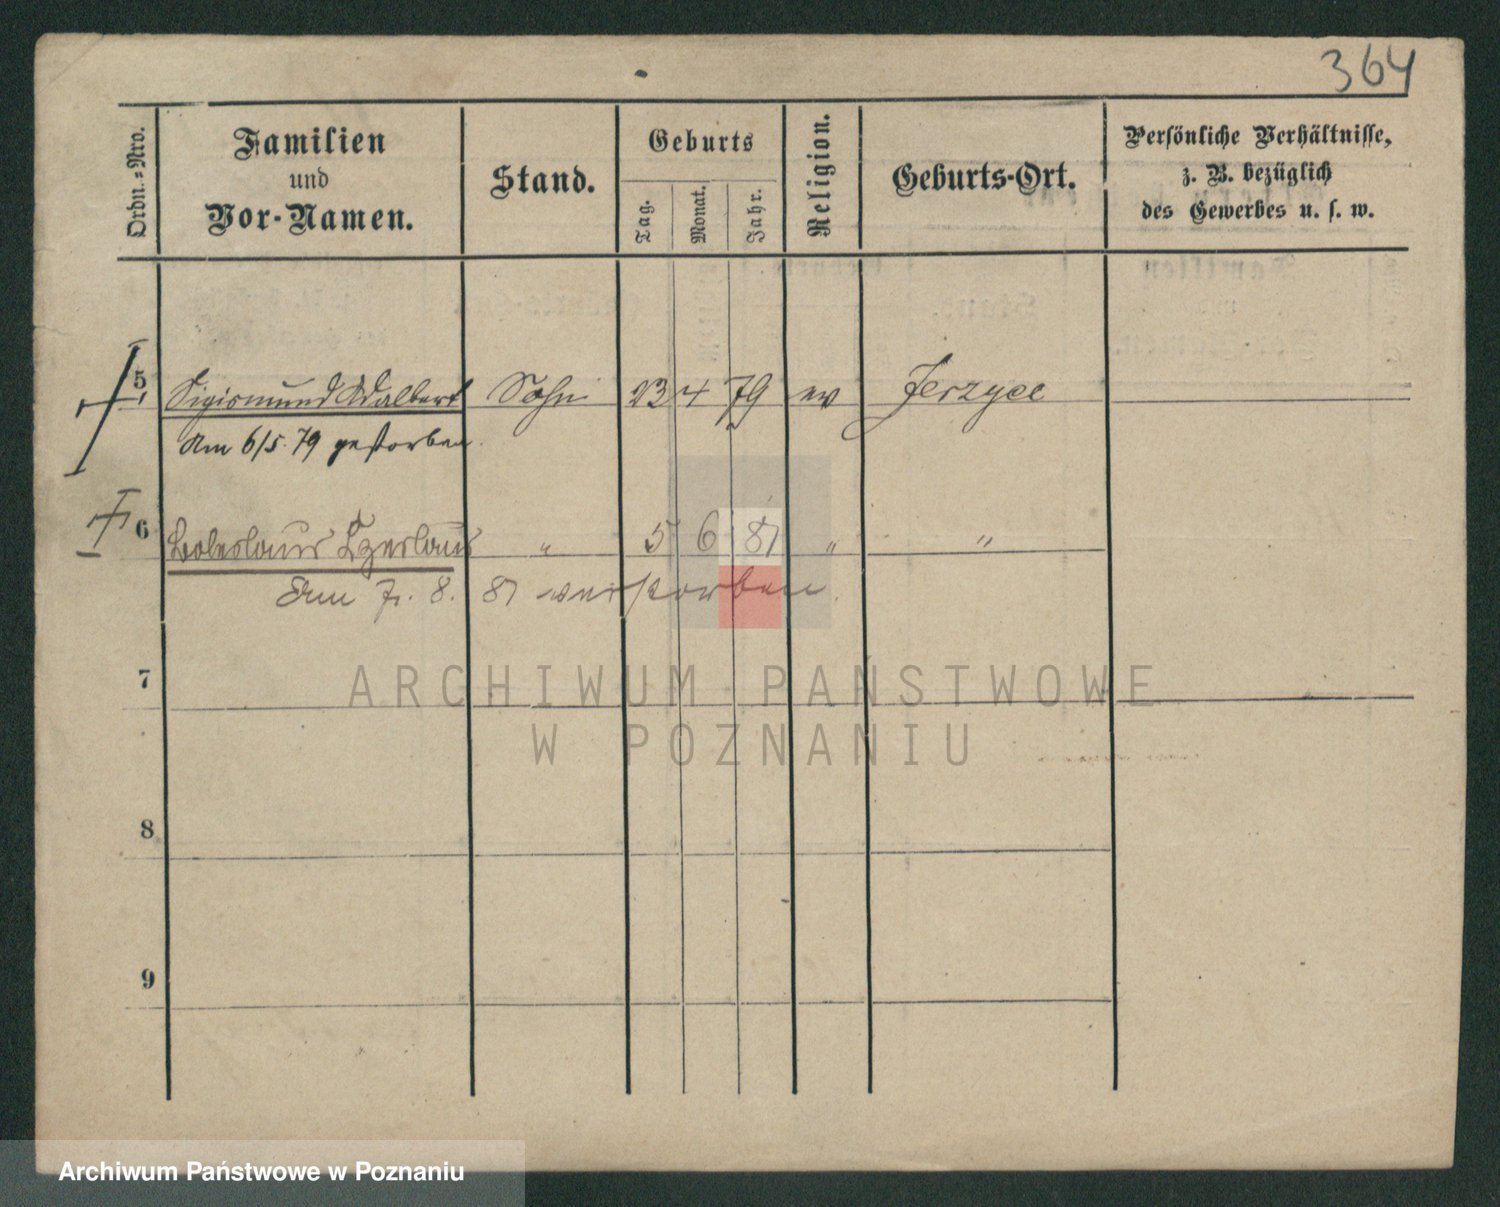 364
Ordn.-Nro.
Familien
und
Vor-Namen.
Stand.
Geburts
Tag.
Monat.
Jahr.
Religion.
Geburts-Ort.
Persönliche Verhältnisse,
z. B. bezüglich
des Gewerbes u. s. w.
5 Sigismund Adalbert Sohn 23 4 79 Jerzyce
Am 6/5. 79 gestorben.
6 Boleslaus 〃 5 6 81 〃 〃
Am 7. 8. 81 verstorben.
7
ARCHIWUM PAŃSTWOWE
W POZNANIU
8
9
Archiwum Państwowe w Poznaniu